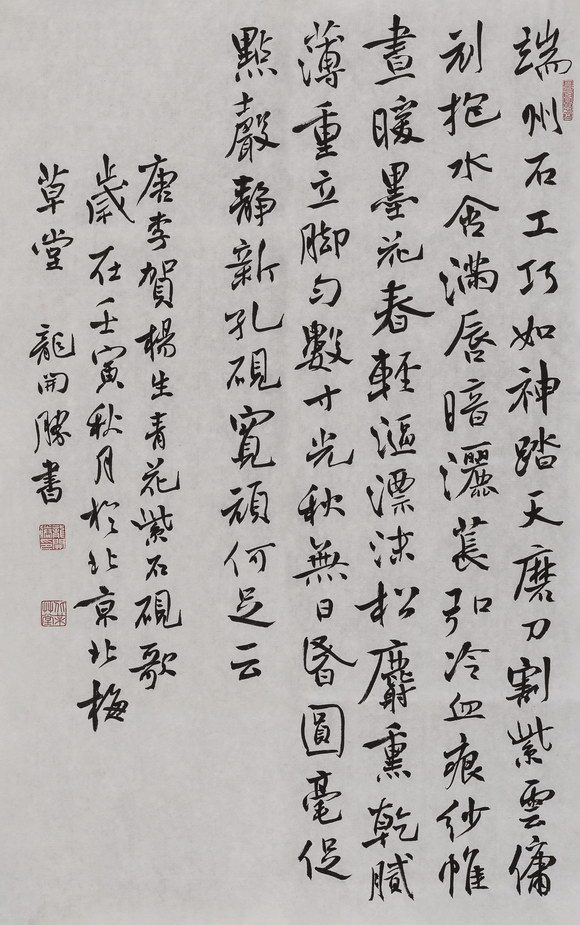 端州石工巧如神踏天磨刀割紫雲傭
刓抱水含滿唇暗灑萇弘冷血痕紗帷
晝暖墨花春輕漚漂沫松麝熏乾膩
薄重立腳勻數寸光秋無日昏圓毫促
點聲靜新孔硯寬頑何足云
唐李賀楊生青花紫石硯歌
歲在壬寅秋月於北京北梅
草堂 龍開勝書